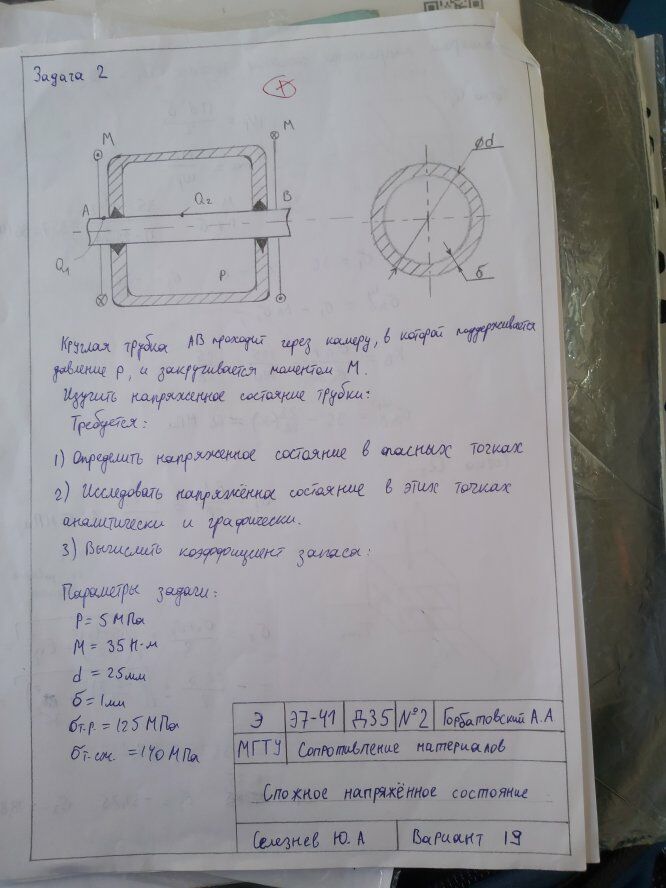 Задача 2
M
M
A
Q₂
B
Q₁
P
⌀d
δ
Круглая трубка AB проходит через камеру, в которой поддерживается
давление p, и закручивается моментом M.
Изучить напряженное состояние трубки:
Требуется:
1) Определить напряженное состояние в опасных точках
2) Исследовать напряжённое состояние в этих точках
аналитически и графически.
3) Вычислить коэффициент запаса:
Параметры задачи:
P = 5 МПа
M = 35 Н·м
d = 25мм
δ = 1мм
σт.р. = 125 МПа
σт.сж. = 140 МПа
Э Э7-41 Д35 №2 Горбатовский А.А
МГТУ Сопротивление материалов
Сложное напряжённое состояние
Селезнев Ю.А Вариант 19